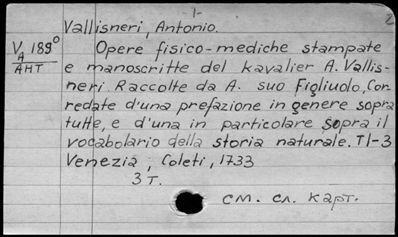 -1-
2
Vallisneri, Antonio.
V 189°
A
АНТ
Opere fisico-mediche stampate
e manoscritte del kavalier A. Vallis-
neri. Raccolte da A. suo Figliuolo, Cor
redate d'una prefazione in genere sopra
tutte, e d'una in particolare sopra il
vocabolario della storia naturale. T1-3
Venezia, Coleti, 1733
3 T.
см. сл. карт.